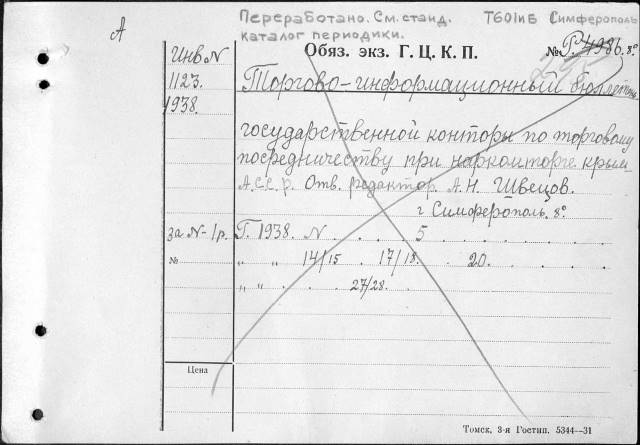 Переработано. См. станд. Т601иБ Симферополь
каталог периодики.
А
Обяз. экз. Г. Ц. К. П. № Р-4986. 8°
Инв N
1123
1938.
Торгово-информационный бюллетень
государственной конторы по торговому
посредничеству при наркомторге крым
А.С.С.Р. Отв. редактор А.Н. Швецов.
г Симферополь. 8°
за N-1р. Г. 1938. N . . . 5 . . . .
№ „ „ 14/15 . 17/18. . 20. . .
„ „ . . 27/28. . . . .
Цена
Томск, 3-я Гостип. 5344—31